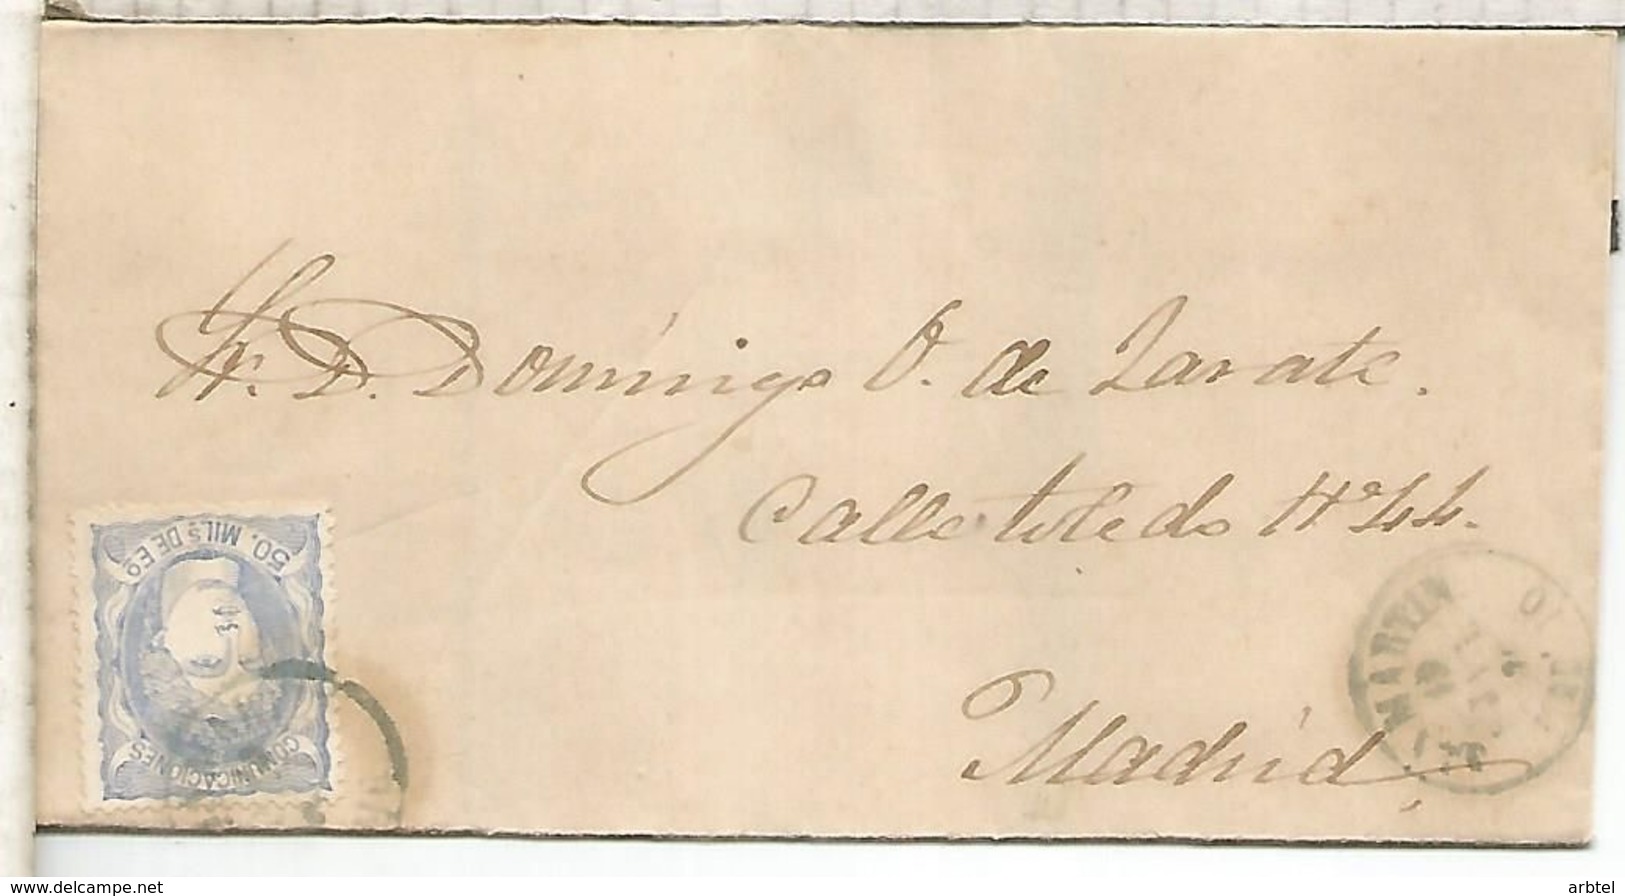 Sr. D. Domingo O. de Zarate.
Calle toledo Nº 44.
Madrid
50. MILS DE EO
COMUNICACIONES
MARTIN
19
www.delcampe.net
arbtel